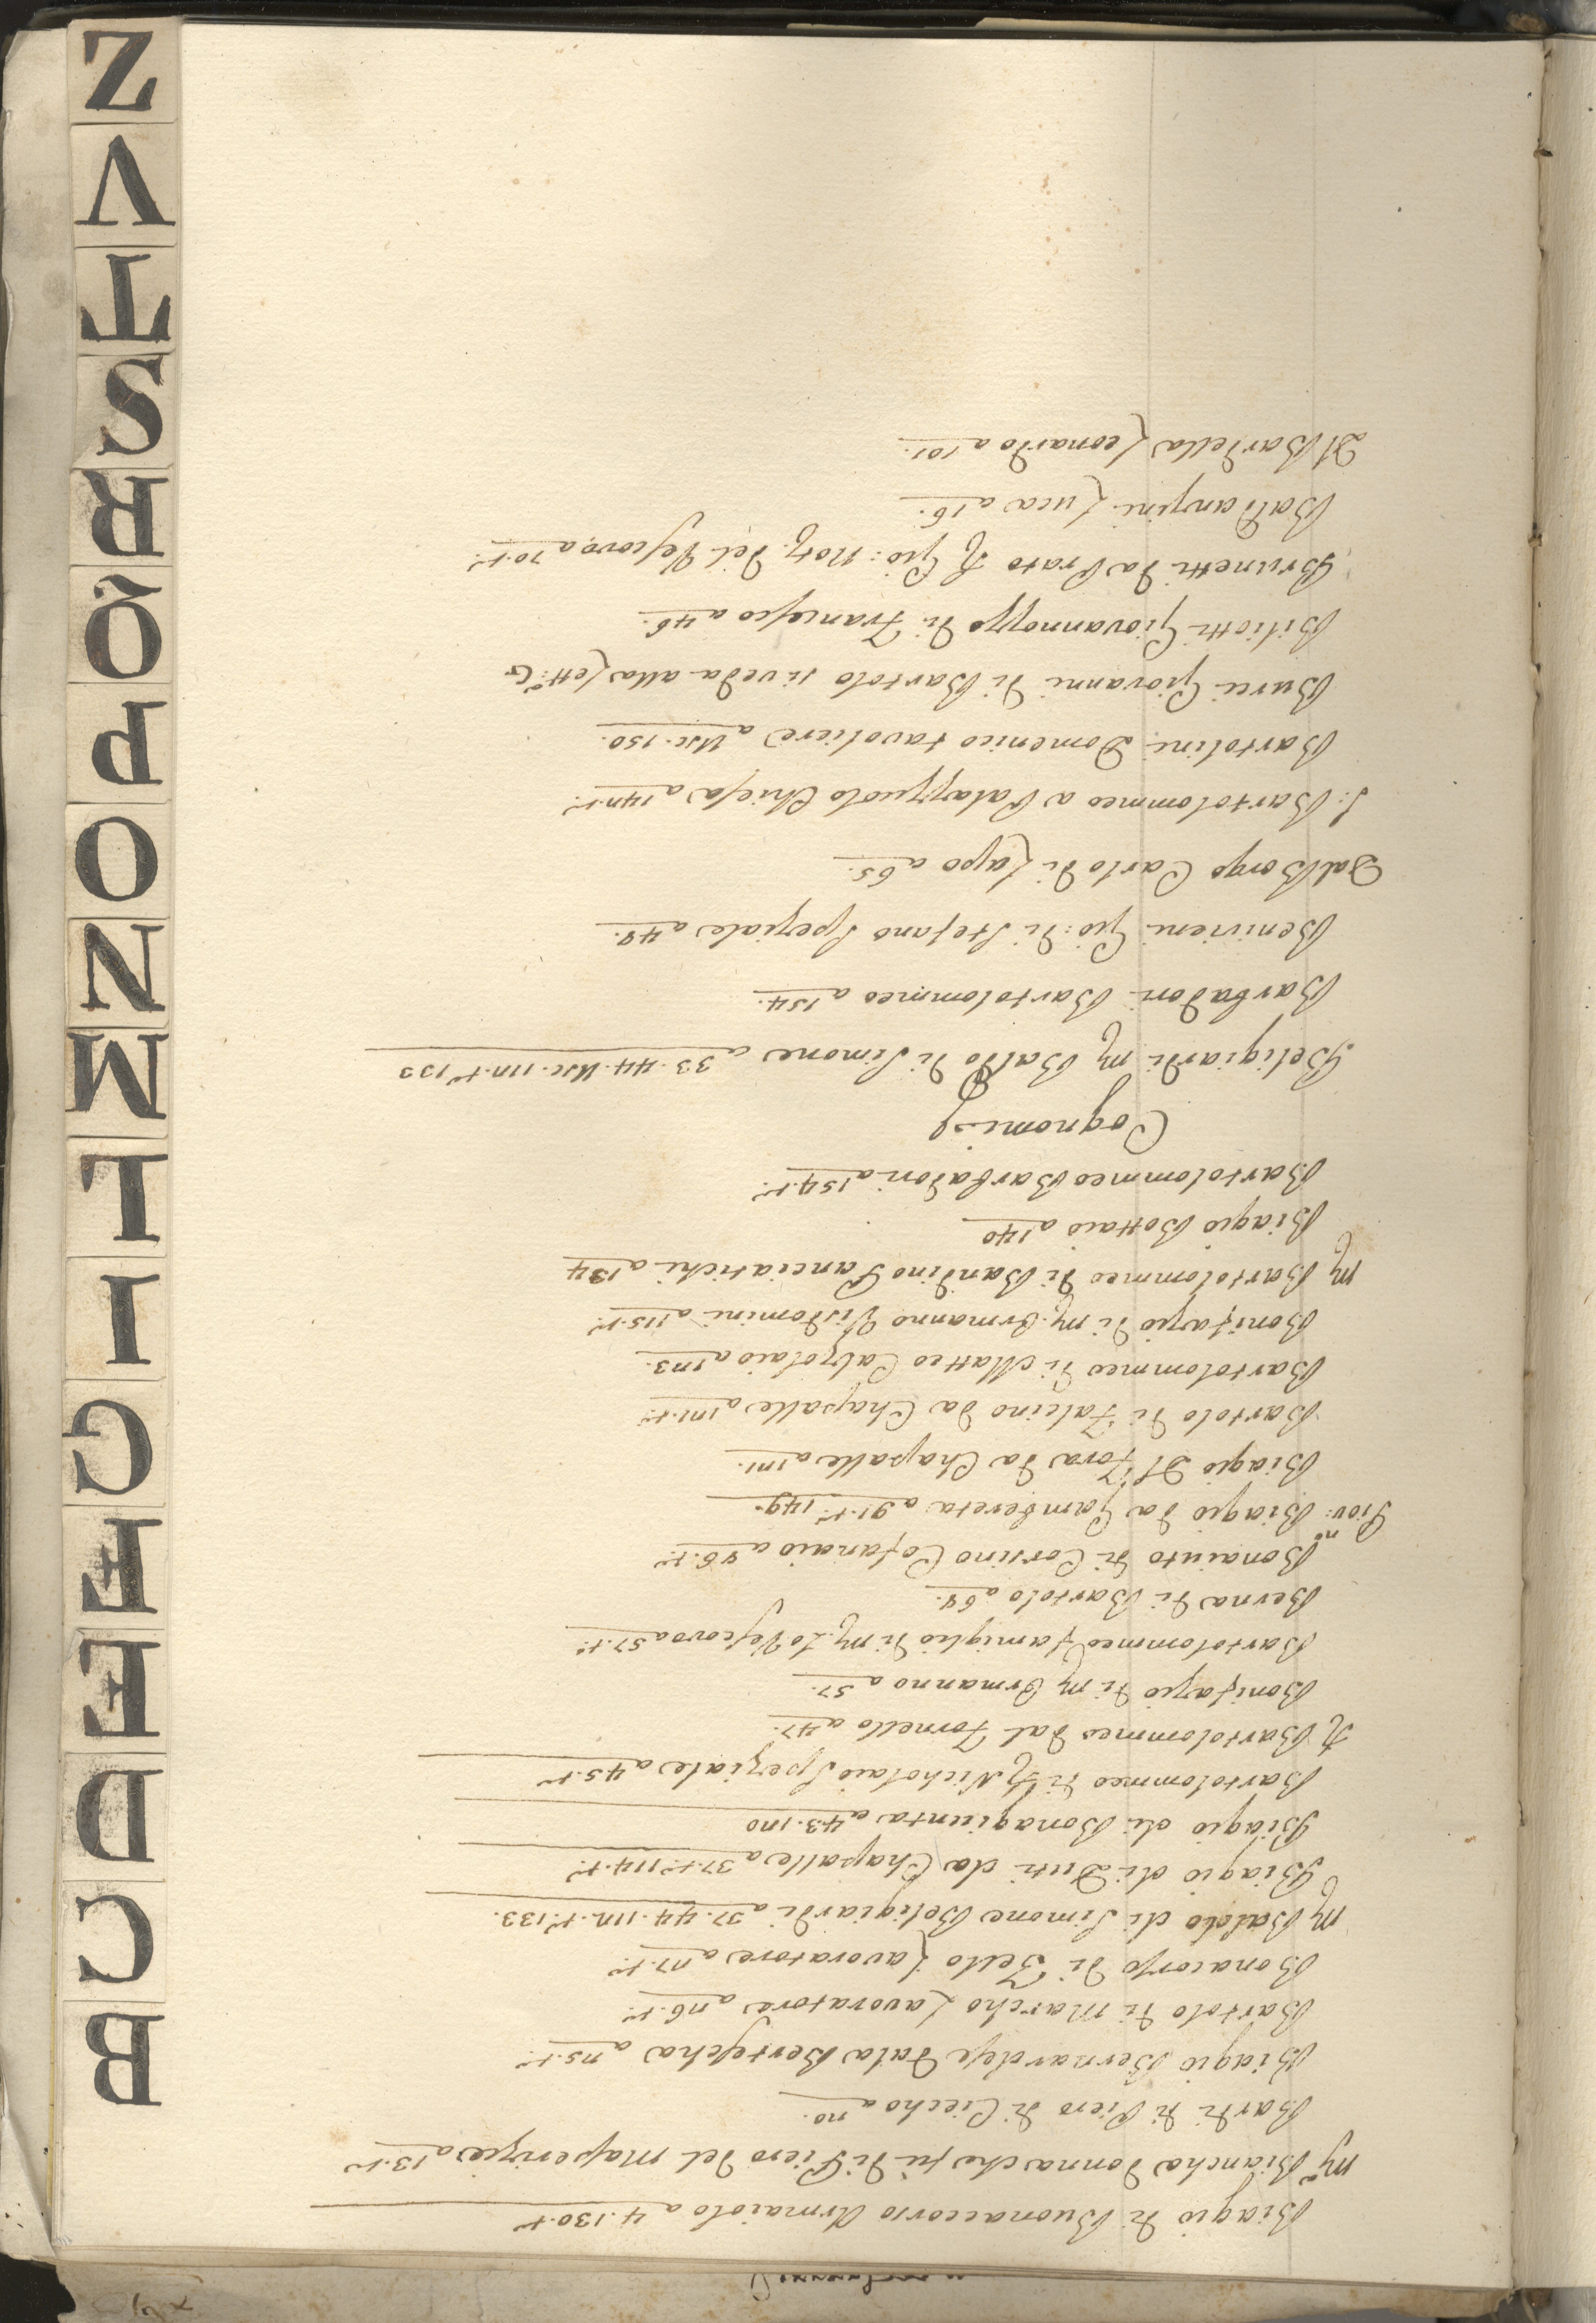 Biagio di Buonaccorso Armaiolo a 4. 130. tº
Mª Biancha donna che fu di Piero del a 13. tº
Bardi di Piero di Ciecho a 20.
Biagio Bernardese dala Bertescha a 25. tº
Bartolo di Marcho Lavoratore a 26. tº
Bonacorso di Zello Lavoratore a 27. tº
M Baldo di Simone Beligiardi a 37. 44. 112. tº 133.
Biagio di Duti da Chapalle a 37. tº 114. tº
Biagio di Bonagiunta a 43. 120
Bartolommeo di Nicholaio Speziale a 45. tº
Bartolommeo dal Fornello a 47.
Bonifazio di M Ormanno a 57.
Bartolommeo famiglio di M. Lo Vescovo a 57. tº
Berna di Bartolo a 68.
Bonaiuto di Corsino Cofanaio a 86. tº
Piov.no Biagio da Gambereta a 91. tº 149.
Biagio Fora da Chapalle a 121.
Bartolo di Falcino da Chapalle a 121. tº
Bartolommeo di Matteo Calzolaio a 123.
Bonifazio di M. Ormanno Visdomini a 125. tº
M Bartolommeo di Bandino Panciatichi a 134
Biagio Bottaio a 140
Bartolommeo Barbadori a 154. tº
Cognomi
Beligiardi M Baldo di Simone a 33. 44. Usc. 112. tº 133
Barbadori Bartolommeo a 154.
Benivieni Gio: di Stefano Speziale a 48.
Dal Borgo Carlo di Lapo a 65.
S: Bartolommeo a Palazzuolo Chiesa a 142. tº
Bartolini Domenico tavoliere a Usc. 150.
Burci Giovanni di Bartolo si veda alla Lettª G
Biliotti Giovannozzo di Francesco a 46.
Brunetti da Prato Gio: Not. del Vescovo a 70. tº
Baldanzini Luca a 16.
Bardella Leonardo a 101.
B
C
D
E
F
G
I
L
M
N
O
P
Q
R
S
T
V
Z